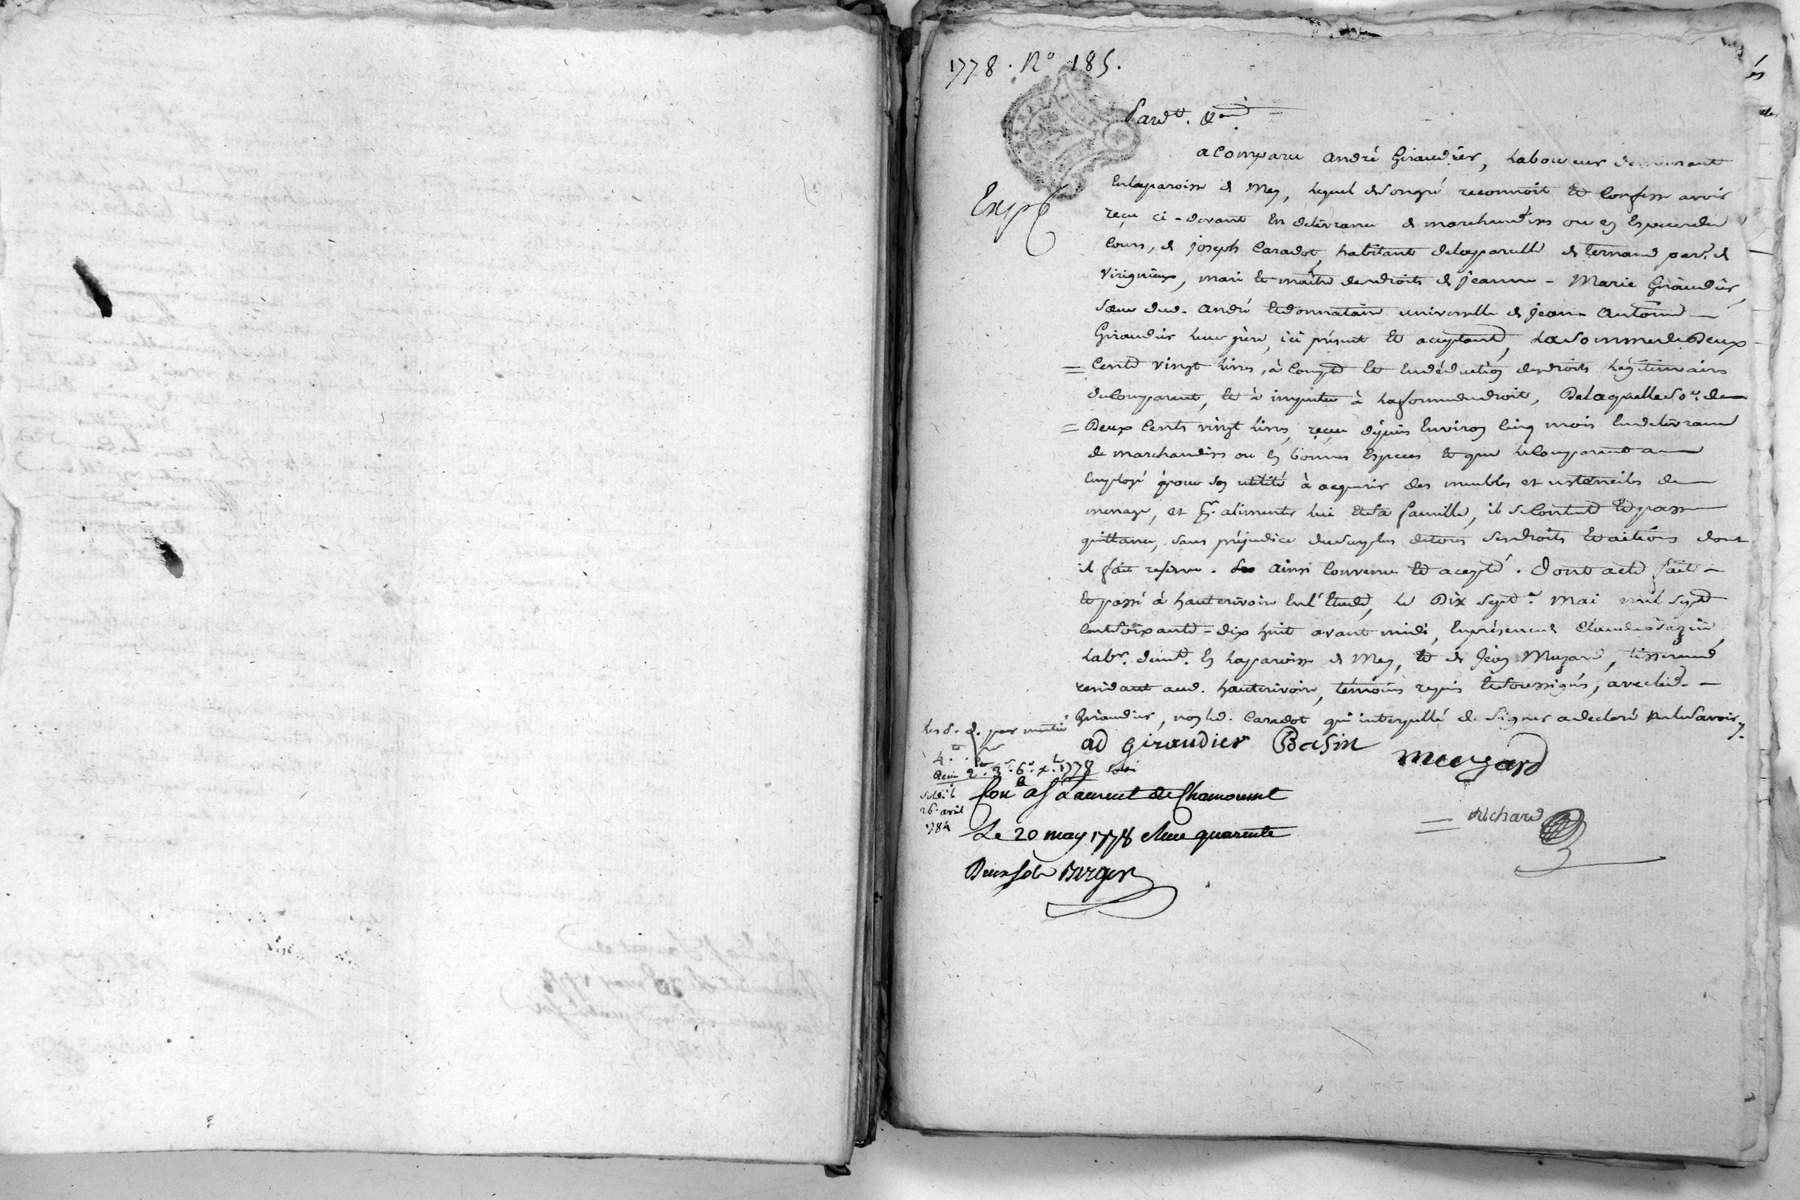 1778. No 185.
Pard.t &.a
Exp.é
a Comparu andré Giraudier, Laboureur demeurant
En la paroisse de Mey, Lequel de son gré reconnoit et Confesse avoir
reçu ci-devant En délivrance de marchandises ou en Especes du
Cours, de joseph Caradot, habitant de la parcelle de ternand par.e de
Virignieux, mari et maître des droits de jeanne-Marie Giraudier,
Sœur dud. andré et donnataire universelle de jean-antoine
Giraudier leur père, ici présent et acceptant, La Somme de Deux
Cents vingt Livres, à Compte et En déduction des droits Légitimaires
du Comparant, et à imputer à La forme du droit, De laquelle So.e de
Deux Cents vingt Livres, reçue depuis Environ Cinq mois En délivrance
de marchandises ou en bonnes Especes et que le Comparant a
Employé pour son utilité à acquerir des meubles et ustenciles de
menage, et p.r alimenter lui et Sa famille, il se Contente et passe
quittance, sans préjudice du Surplus de tous Ses droits et actions dont
il fait reserve. ainsi Convenu et accepté. Dont acte fait
et passé à hauterivoire En l'Etude, le Dix Sept.e Mai mil Sept
Cent Soixante-dix huit avant midi, En présence de Claude
Lab.r dem.t En la paroisse de Mey, et de Jean Muzard, tisserand
residant aud. hauterivoire, témoins requis et Soussignés, avec led.
Giraudier, non led. Caradot qui interpellé de Signer a declaré ne le Savoir
ad Giraudier Basin Muzard
Richard
26. avril
1784
Con.lé a S.t Laurent de Chamousset
Le 20 may 1778 Reçu quarente
Deux sols Berger